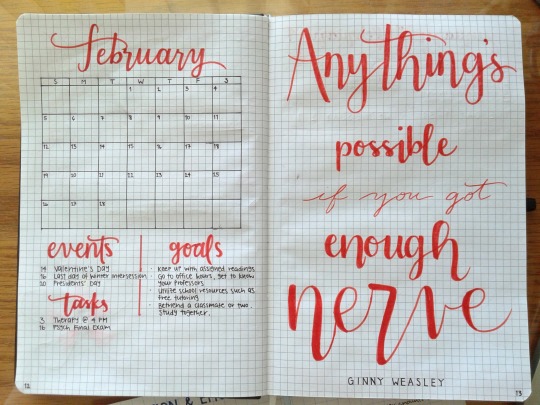 february
S M T W T F S
1 2 3 4
5 6 7 8 9 10 11
12 13 14 15 16 17 18
19 20 21 22 23 24 25
26 27 28
events
14 Valentine's Day
16 Last day of Winter intersession
20 Presidents' Day
tasks
3 Therapy @ 4 PM
16 Psych Final Exam
goals
· Keep up with assigned readings
· Go to office hours, get to know
your professors
· Utilize school resources such as
free tutoring
· Befriend a classmate or two.
Study together.
12
Anything's
possible
if you got
enough
nerve
GINNY WEASLEY
13